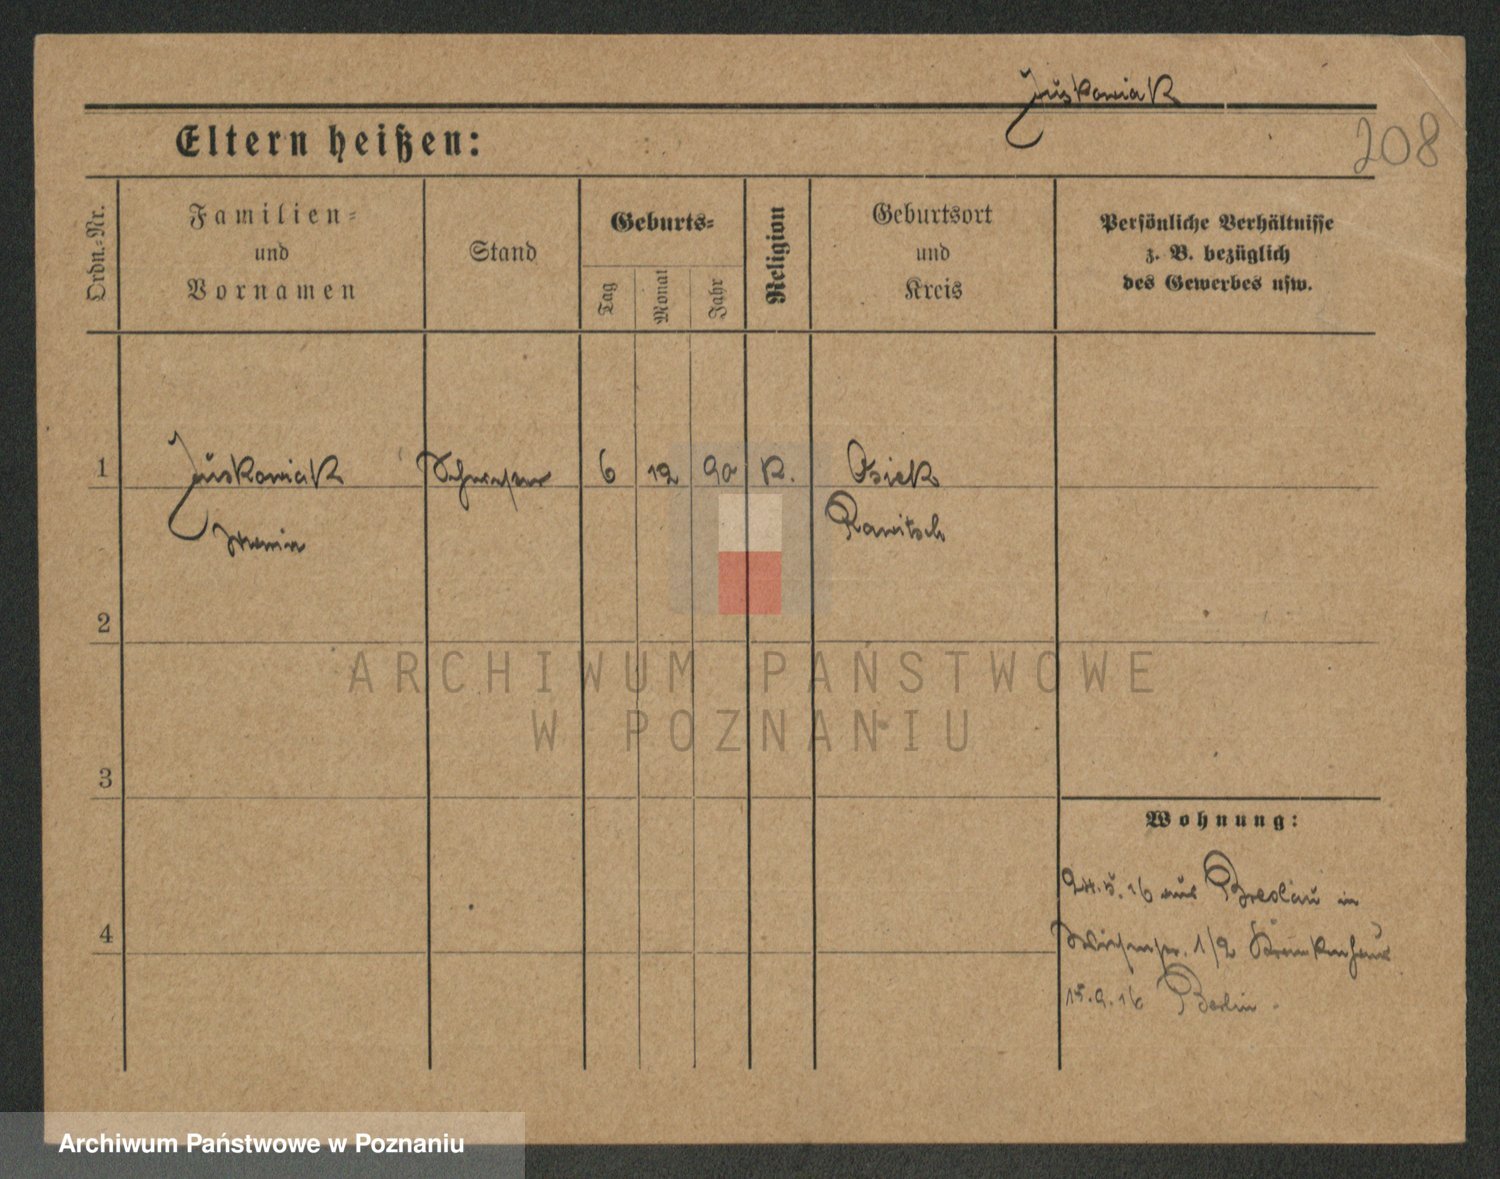 Juskowiak
208
Eltern heißen:
Ordn.-Nr.
Familien-
und
Vornamen
Stand
Geburts-
Tag
Monat
Jahr
Religion
Geburtsort
und
Kreis
Persönliche Verhältnisse
z. B. bezüglich
des Gewerbes usw.
1
Juskowiak
Schwester
6
12
90
K.
Osiek
Rawitsch
2
ARCHIWUM PAŃSTWOWE
W POZNANIU
3
Wohnung:
24.5.16 aus Breslau in
1/2 Krankenhaus
4
15.9.16 Berlin
Archiwum Państwowe w Poznaniu